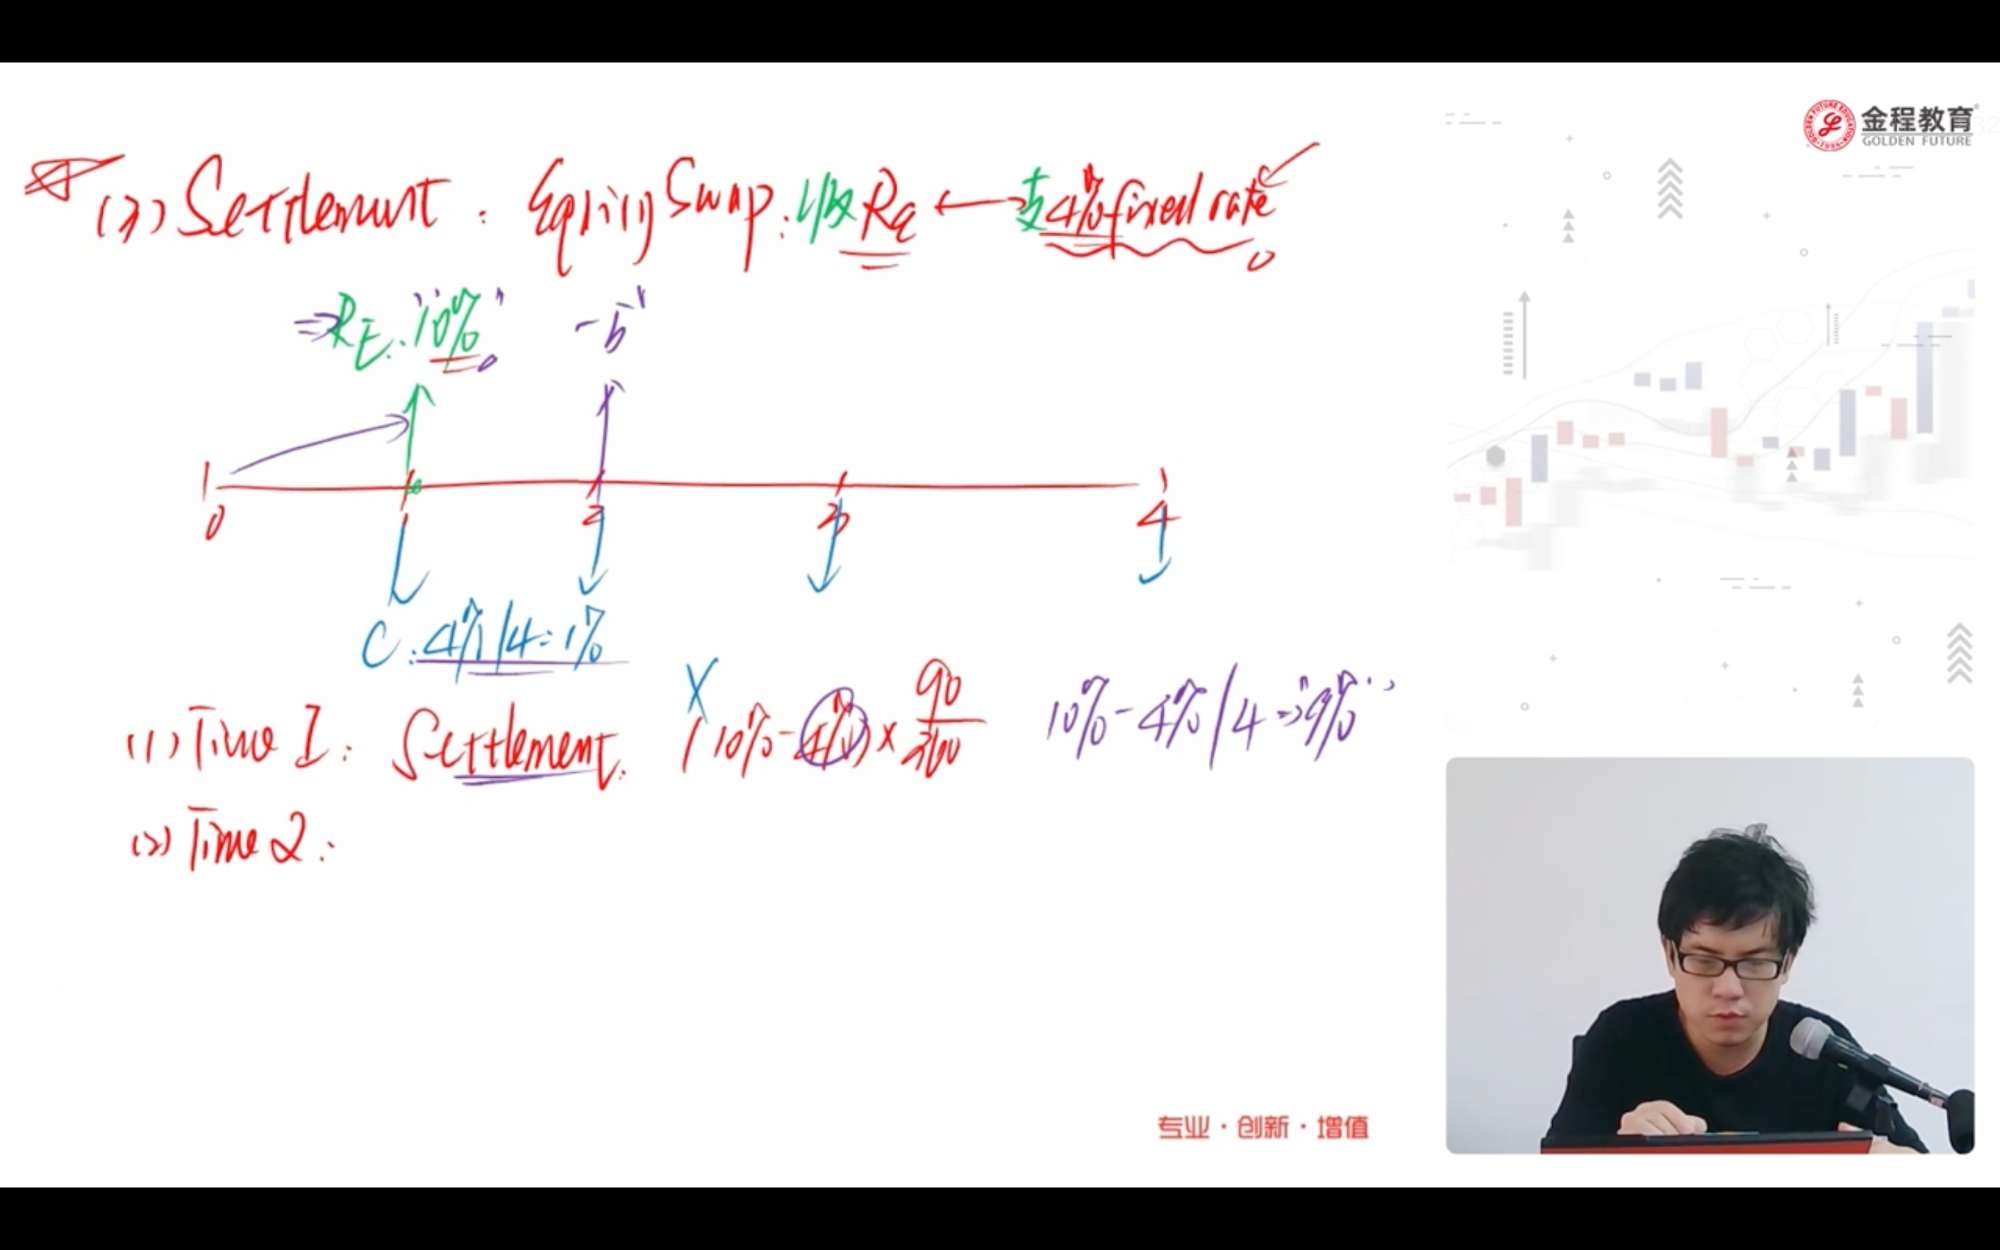 金程教育
GOLDEN FUTURE
(3) Settlement : Equity Swap : 收 RE ←→ 支 4% fixed rate
⇒ RE : "10%" -5
0 1 2 3 4
C : 4% / 4 = 1%
(1) Time 1 : Settlement : X (10% - 4%) × 90/360 10% - 4% / 4 ⇒ "9%"
(2) Time 2 :
专业·创新·增值